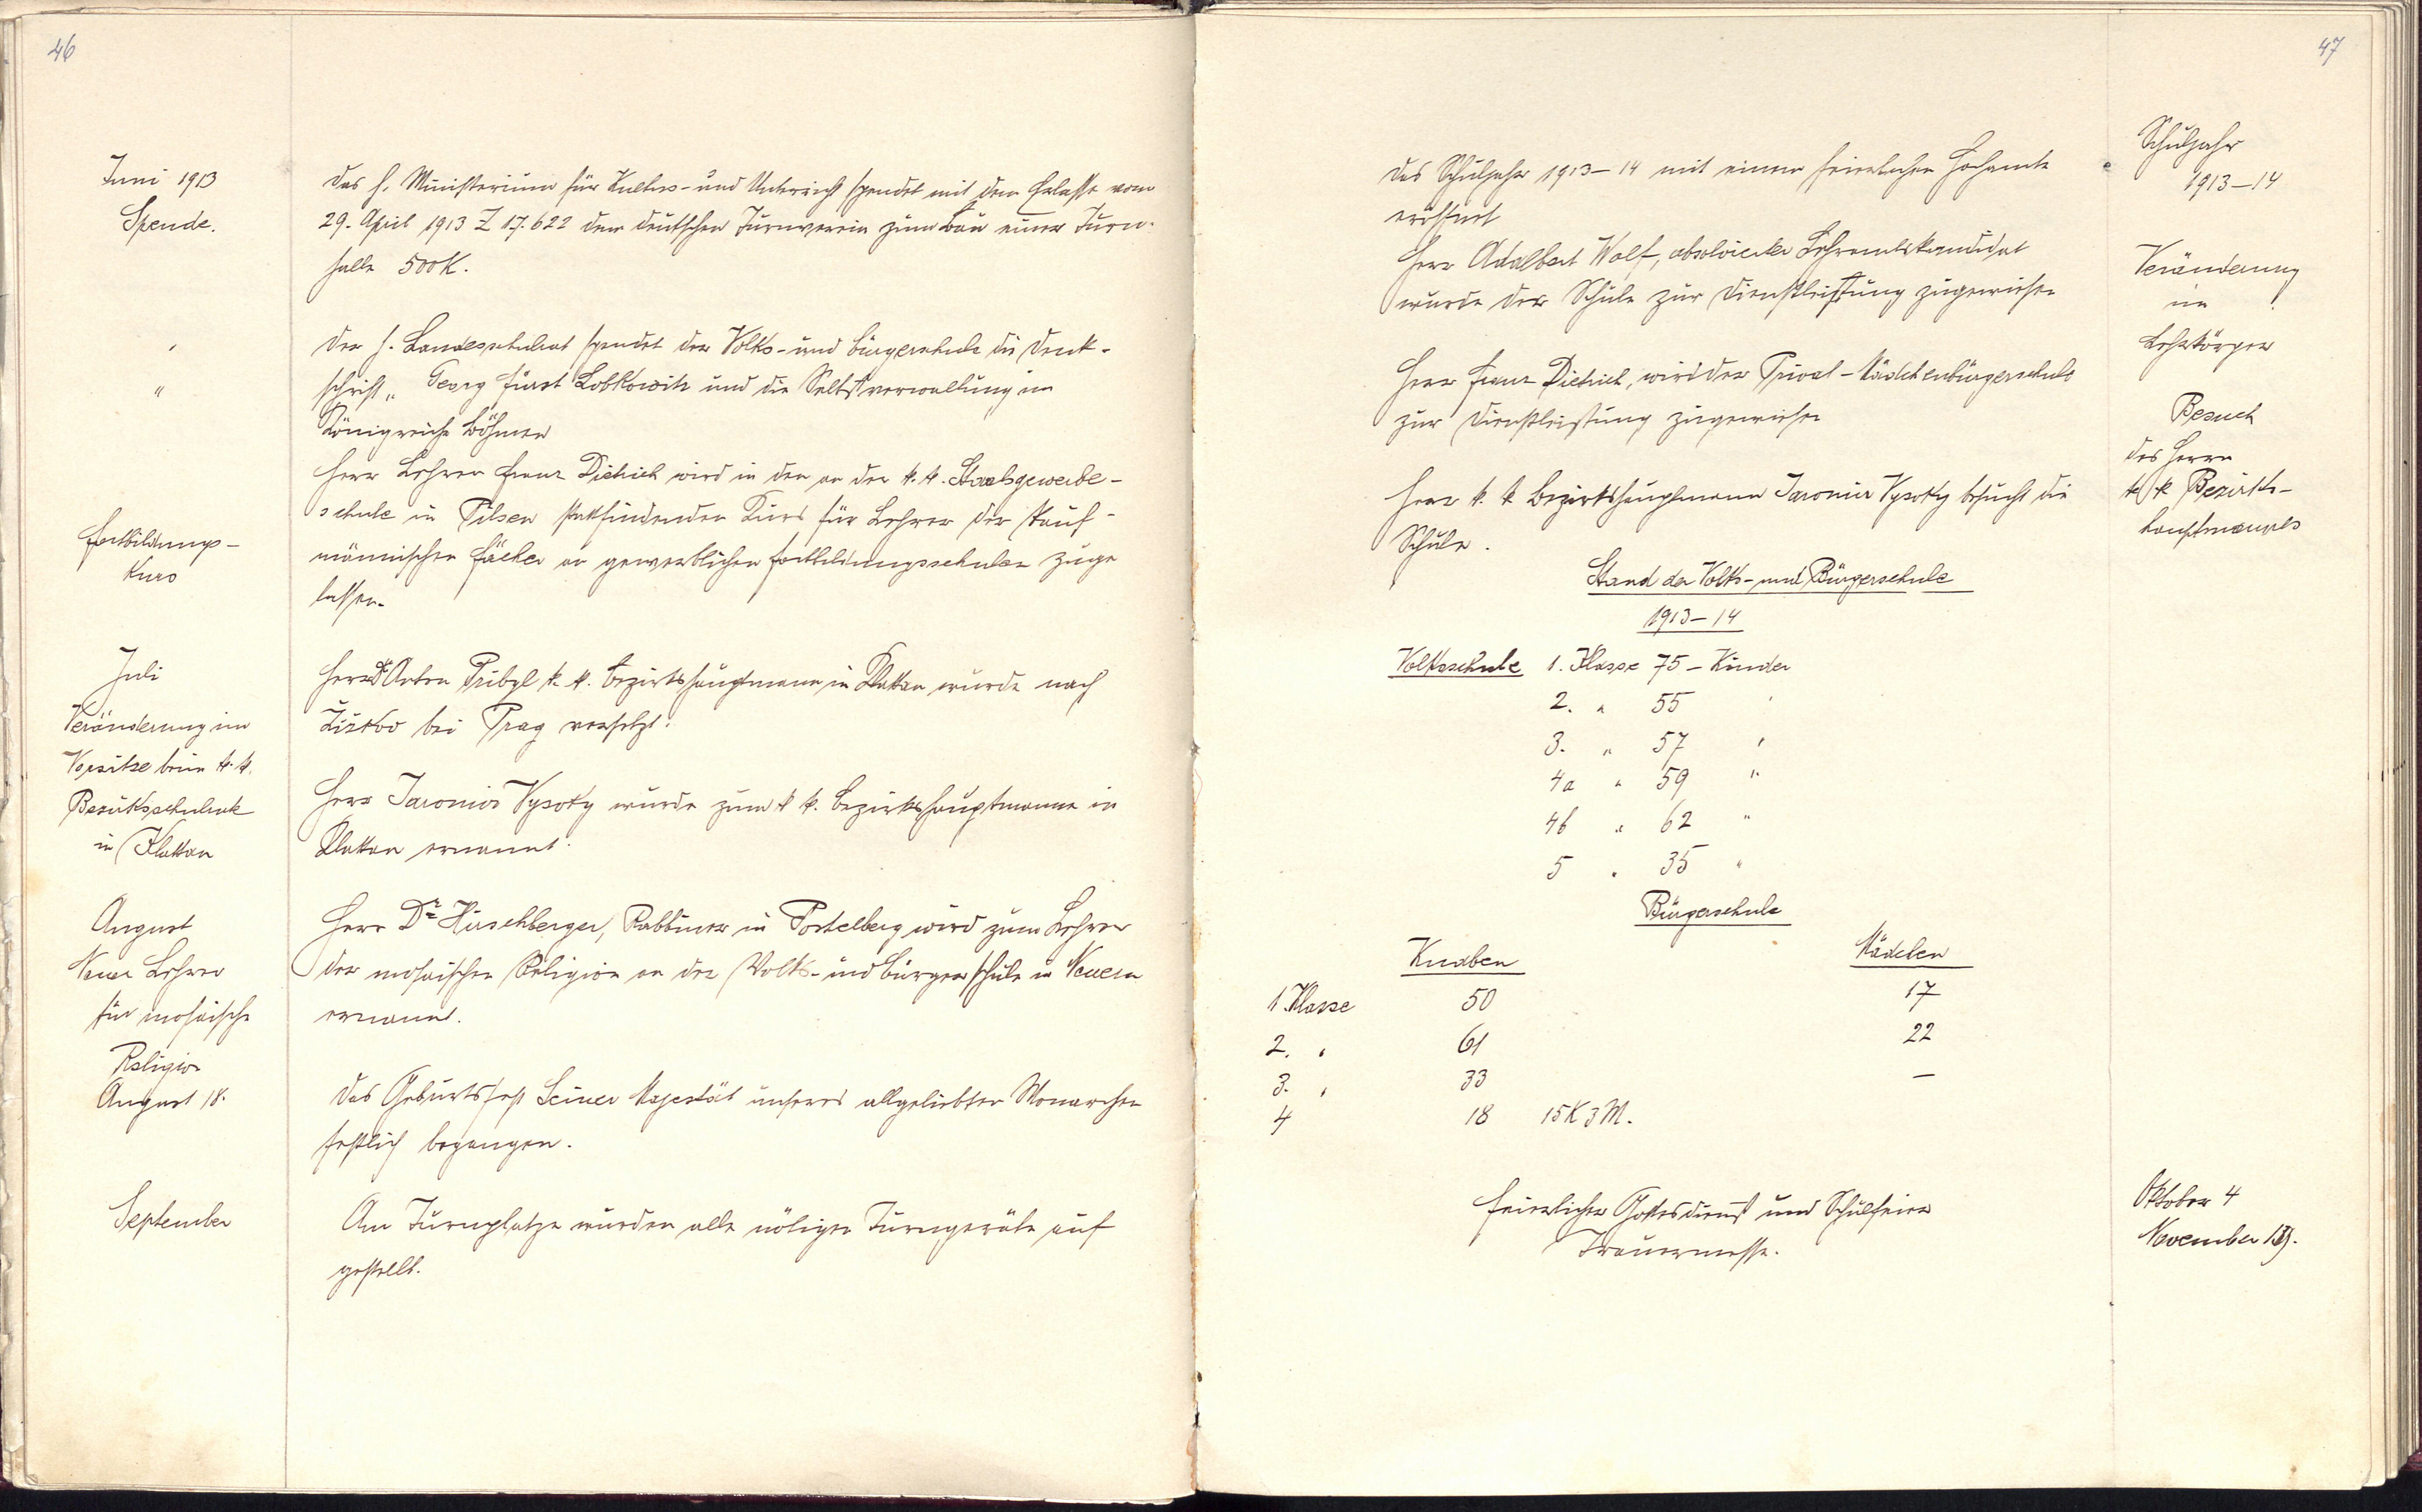 46
Juni 1913
Spende.
Das h. Ministerium für Kultus- und Unterricht spendet mit dem Erlasse vom
29. April 1913 Z 17.622 dem deutschen Turnverein zum Bau einer Turn-
halle 500 K.
"
Der h. Landesschulrat spendet der Volks- und Bürgerschule die Denk-
"
schrift „Georg Fürst Lobkowitz und die Selbstverwaltung im
Königreiche Böhmen
Fortbildungs-
kurs
Herr Lehrer Franz Dietrich wird in den an der k. k. Staatsgewerbe-
schule in Pilsen stattfindenden Kurs für Lehrer der kauf-
männischen Fächer an gewerblichen Fortbildungsschulen zuge
lassen.
Juli
Veränderung im
Vorsitze beim k. k.
Bezirksschulrate
in Klattau
Herr Dr Anton Přibyl k. k. Bezirkshauptmann in Klattau wurde nach
Žižkov bei Prag versetzt.
Herr Jaromir Vysoky wurde zum k k. Bezirkshauptmanne in
Klattau ernannt.
August
Neuer Lehrer
für mosaische
Religion
Herr Dr Hirschberger, Rabbiner in Postelberg wird zum Lehrer
der mosaischen Religion an der Volks- und Bürgerschule in Neuern
ernannt.
August 18.
Das Geburtsfest Seiner Majestät unseres allgeliebten Monarchen
festlich begangen.
September
Am Turnplatze wurden alle nötigen Turngeräte auf
gestellt.
47
Schuljahr
1913–14
Das Schuljahr 1913–14 mit einem feierlichen Hochamte
eröffnet
Veränderung
im
Lehrkörper
Herr Adalbert Wolf, absolvierter Lehramtskandidat
wurde der Schule zur Dienstleistung zugewiesen
Herr Franz Dietrich, wird der Privat-Mädchenbürgerschule
zur Dienstleistung zugewiesen
Besuch
des Herrn
k k Bezirks-
hauptmannes
Herr k. k Bezirkshauptmann Jaromir Vysoky besucht die
Schule.
Stand der Volks- und Bürgerschule
1913–14
Volksschule 1. Klasse 75 – Kinder
2. " 55 "
3. " 57 "
4a " 59 "
4b " 62 "
5 " 35 "
Bürgerschule
Knaben Mädchen
1. Klasse 50 17
2. " 61 22
3. " 33 —
4 18 15 K 3 M.
Feierlicher Gottesdienst und Schulfeier
Oktober 4
Trauermesse.
November 19.